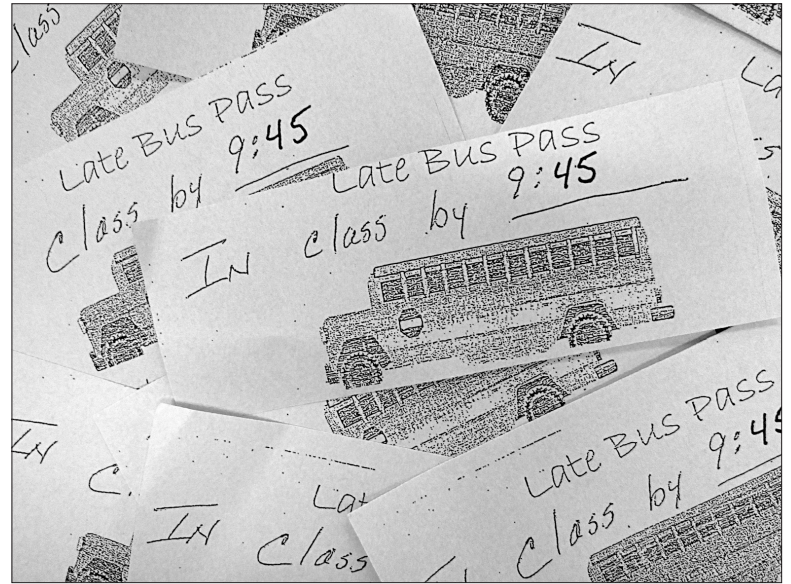 lass
IN
La
Late Bus Pass
Class by 9:45
Late Bus Pass
IN class by 9:45
IN
C.
Late Bus Pass
Class by 9:45
IN
Lat
Class